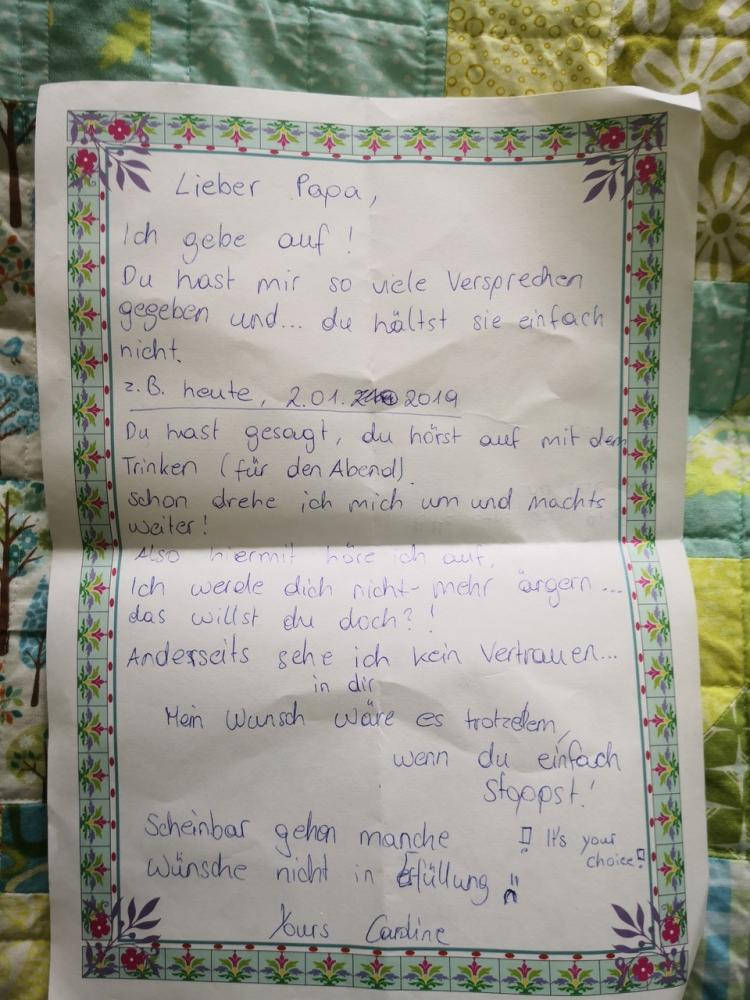 Lieber Papa,
Ich gebe auf!
Du hast mir so viele Versprechen
gegeben und... du hältst sie einfach
nicht.
z.B. heute, 2.01. 2019
Du hast gesagt, du hörst auf mit dem
Trinken (für den Abend).
Schon drehe ich mich um und machts
weiter!
Also hiermit höre ich auf.
Ich werde dich nicht mehr ärgern...
das willst du doch?!
Anderseits sehe ich kein Vertrauen...
in dir
Mein Wunsch wäre es trotzdem,
wenn du einfach
stoppst!
Scheinbar gehen manche
Wünsche nicht in Erfüllung
! It's your
choice!
Yours Caroline